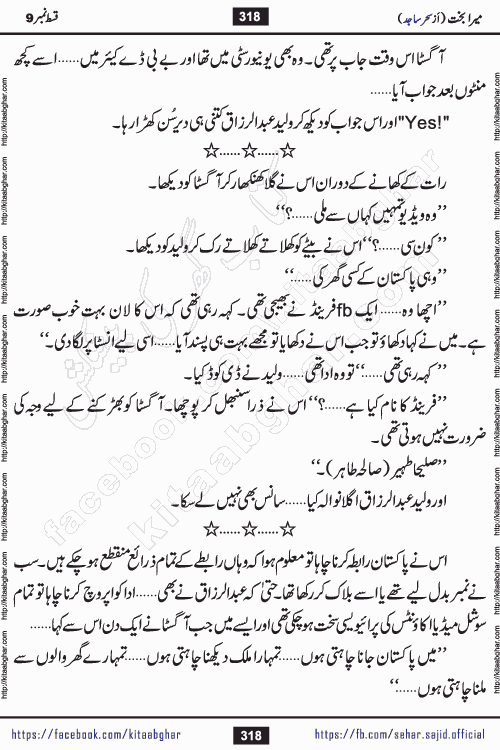 میرا بخت (از سحر ساجد)
318
قسط نمبر 9
آگسٹا اس وقت جاب پر تھی۔ وہ بھی یونیورسٹی میں تھا اور بے بی ڈے کیئر میں......اسے کچھ
منٹوں بعد جواب آیا......
"Yes!" اور اس جواب کو دیکھ کر ولید عبدالرزاق کتنی ہی دیر سُن کھڑا رہا۔
☆......☆......☆
رات کے کھانے کے دوران اس نے گلا کھنکھار کر آگسٹا کو دیکھا۔
’’وہ ویڈیو تمہیں کہاں سے ملی......؟‘‘
’’کون سی......؟‘‘ اس نے بیٹے کو کھلاتے کھلاتے رک کر ولید کو دیکھا۔
’’وہی پاکستان کے کسی گھر کی......‘‘
’’اچھا وہ...... ایک fb فرینڈ نے بھیجی تھی۔ کہہ رہی تھی کہ اس کا لان بہت خوب صورت
ہے۔ میں نے کہا دکھاؤ تو جب اس نے دکھایا تو مجھے بہت ہی پسند آیا......اسی لیے انسٹا پر لگا دی۔‘‘
’’کہہ رہی تھی......‘‘ تو وہ ادا تھی......ولید نے ڈی کوڈ کیا۔
’’فرینڈ کا نام کیا ہے......؟‘‘ اس نے ذرا سنبھل کر پوچھا۔ آگسٹا کو بھڑکنے کے لیے وجہ کی
ضرورت نہیں ہوتی تھی۔
’’صلیحا طہیر (صالحہ طاہر)۔‘‘
اور ولید عبدالرزاق اگلا نوالہ کیا......سانس بھی نہیں لے سکا۔
☆......☆......☆
اس نے پاکستان رابطہ کرنا چاہا تو معلوم ہوا کہ وہاں رابطے کے تمام ذرائع منقطع ہو چکے ہیں۔ سب
نے نمبر بدل لیے تھے یا اسے بلاک کر رکھا تھا۔ حتیٰ کہ عبدالرزاق نے بھی......ادا کو اپروچ کرنا چاہا تو تمام
سوشل میڈیا اکاؤنٹس کی پرائیویسی سخت ہو چکی تھی اور ایسے میں جب آگسٹا نے ایک دن اس سے کہا......
’’میں پاکستان جانا چاہتی ہوں......تمہارا ملک دیکھنا چاہتی ہوں......تمہارے گھر والوں سے
ملنا چاہتی ہوں......‘‘
http://kitaabghar.com
کتاب گھر کی پیشکش
facebook.com/kitaabghar
https://facebook.com/kitaabghar
318
https://fb.com/sehar.sajid.official